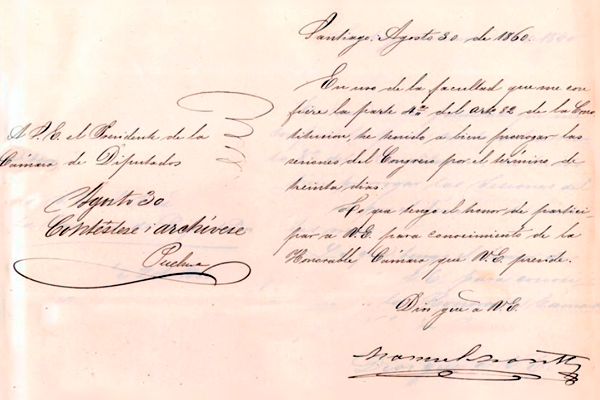 Santiago, Agosto 30 de 1860.
En uso de la facultad que me con
fiere la parte 4ª del art. 82 de la Cons
titucion, he tenido a bien prorrogar las
sesiones del Congreso por el término de
treinta dias.
Lo que tengo el honor de partici
par a V.E. para conocimiento de la
Honorable Cámara que V.E. preside.
Dios gue a V.E.
Manuel Montt
A S.E. el Presidente de la
Cámara de Diputados
Agosto 30
Contéstese i archívese